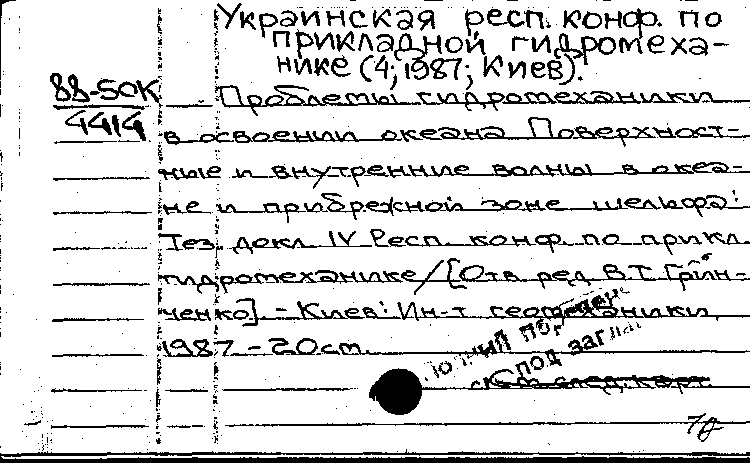 Украинская респ. конф. по
прикладной гидромеха-
нике (4; 1987; Киев).
88-50К
4414
Проблемы гидромеханики
в освоении океана Поверхност-
ные и внутренние волны в океа-
не и прибрежной зоне шельфа:
Тез. докл. IV Респ. конф. по прикл.
гидромеханике / [Отв. ред. В.Т. Грин-
ченко] - Киев: Ин-т геомеханики,
1987 - 20 см.
под загла
См след. карт.